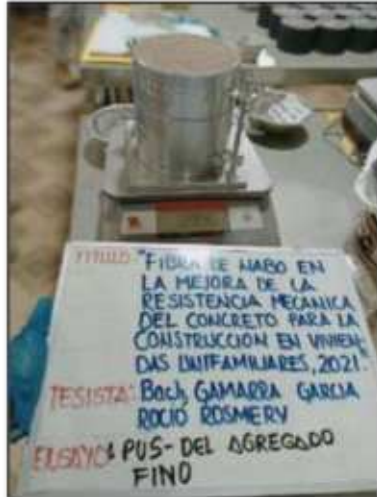 TITULO: "FIBRA DE NABO EN
LA MEJORA DE LA
RESISTENCIA MECANICA
DEL CONCRETO PARA LA
CONSTRUCCION EN VIVIEN-
DAS UNIFAMILIARES, 2021."
TESISTA: Bach, GAMARRA GARCIA
ROCIO ROSMERY
ENSAYO: PUS- DEL AGREGADO
FINO